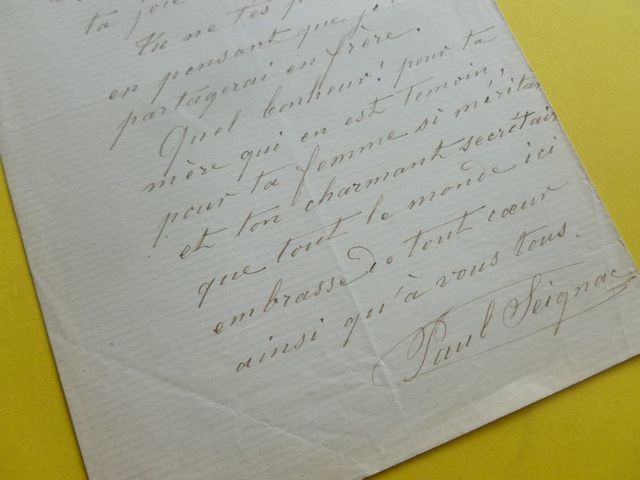 ta joie
Tu ne t'es p
en pensant que j
partagerai en frère.
Quel bonheur! pour ta
mère qui en est temoin,
pour ta femme si méritan
et ton charmant secrétair
que tout le monde ici
embrasse de tout cœur
ainsi qu'à vous tous.
Paul Seignac